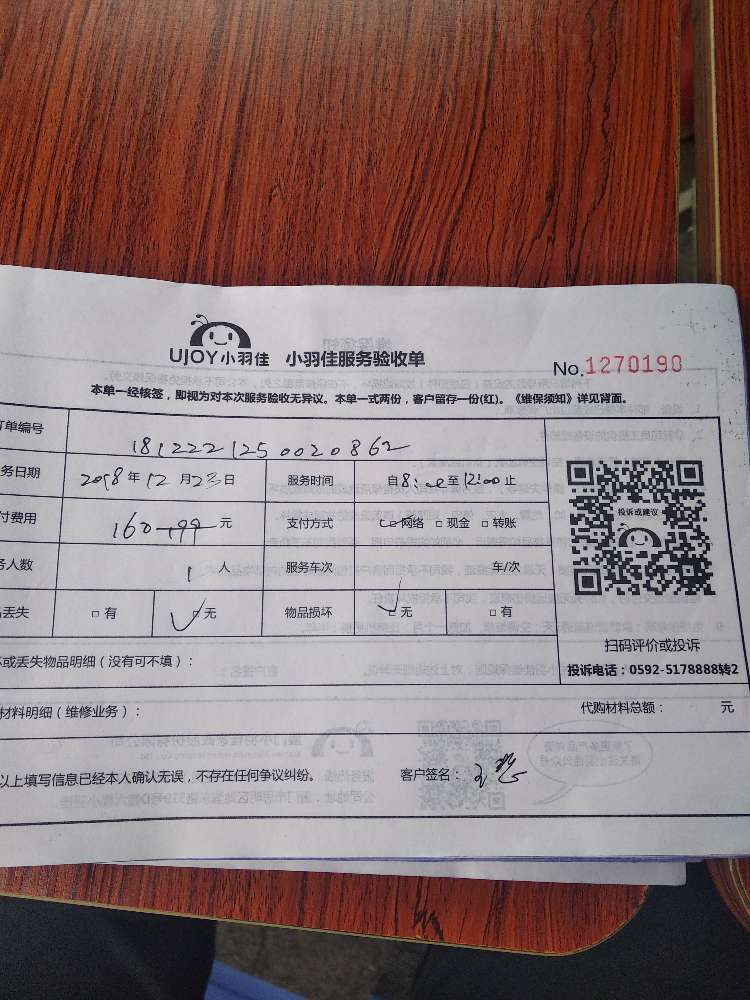 UJOY小羽佳 小羽佳服务验收单
No.1270190
本单一经核签，即视为对本次服务验收无异议。本单一式两份，客户留存一份(红)。《维保须知》详见背面。
订单编号 1812221250020862
务日期 2018年12月23日 服务时间 自8:00至12:00止
付费用 160-199元 支付方式 □网络 □现金 □转账
务人数 1人 服务车次 车/次
丢失 □有 □无 物品损坏 □无 □有
投诉或建议
扫码评价或投诉
投诉电话：0592-5178888转2
坏或丢失物品明细（没有可不填）：
材料明细（维修业务）： 代购材料总额： 元
以上填写信息已经本人确认无误，不存在任何争议纠纷。 客户签名：